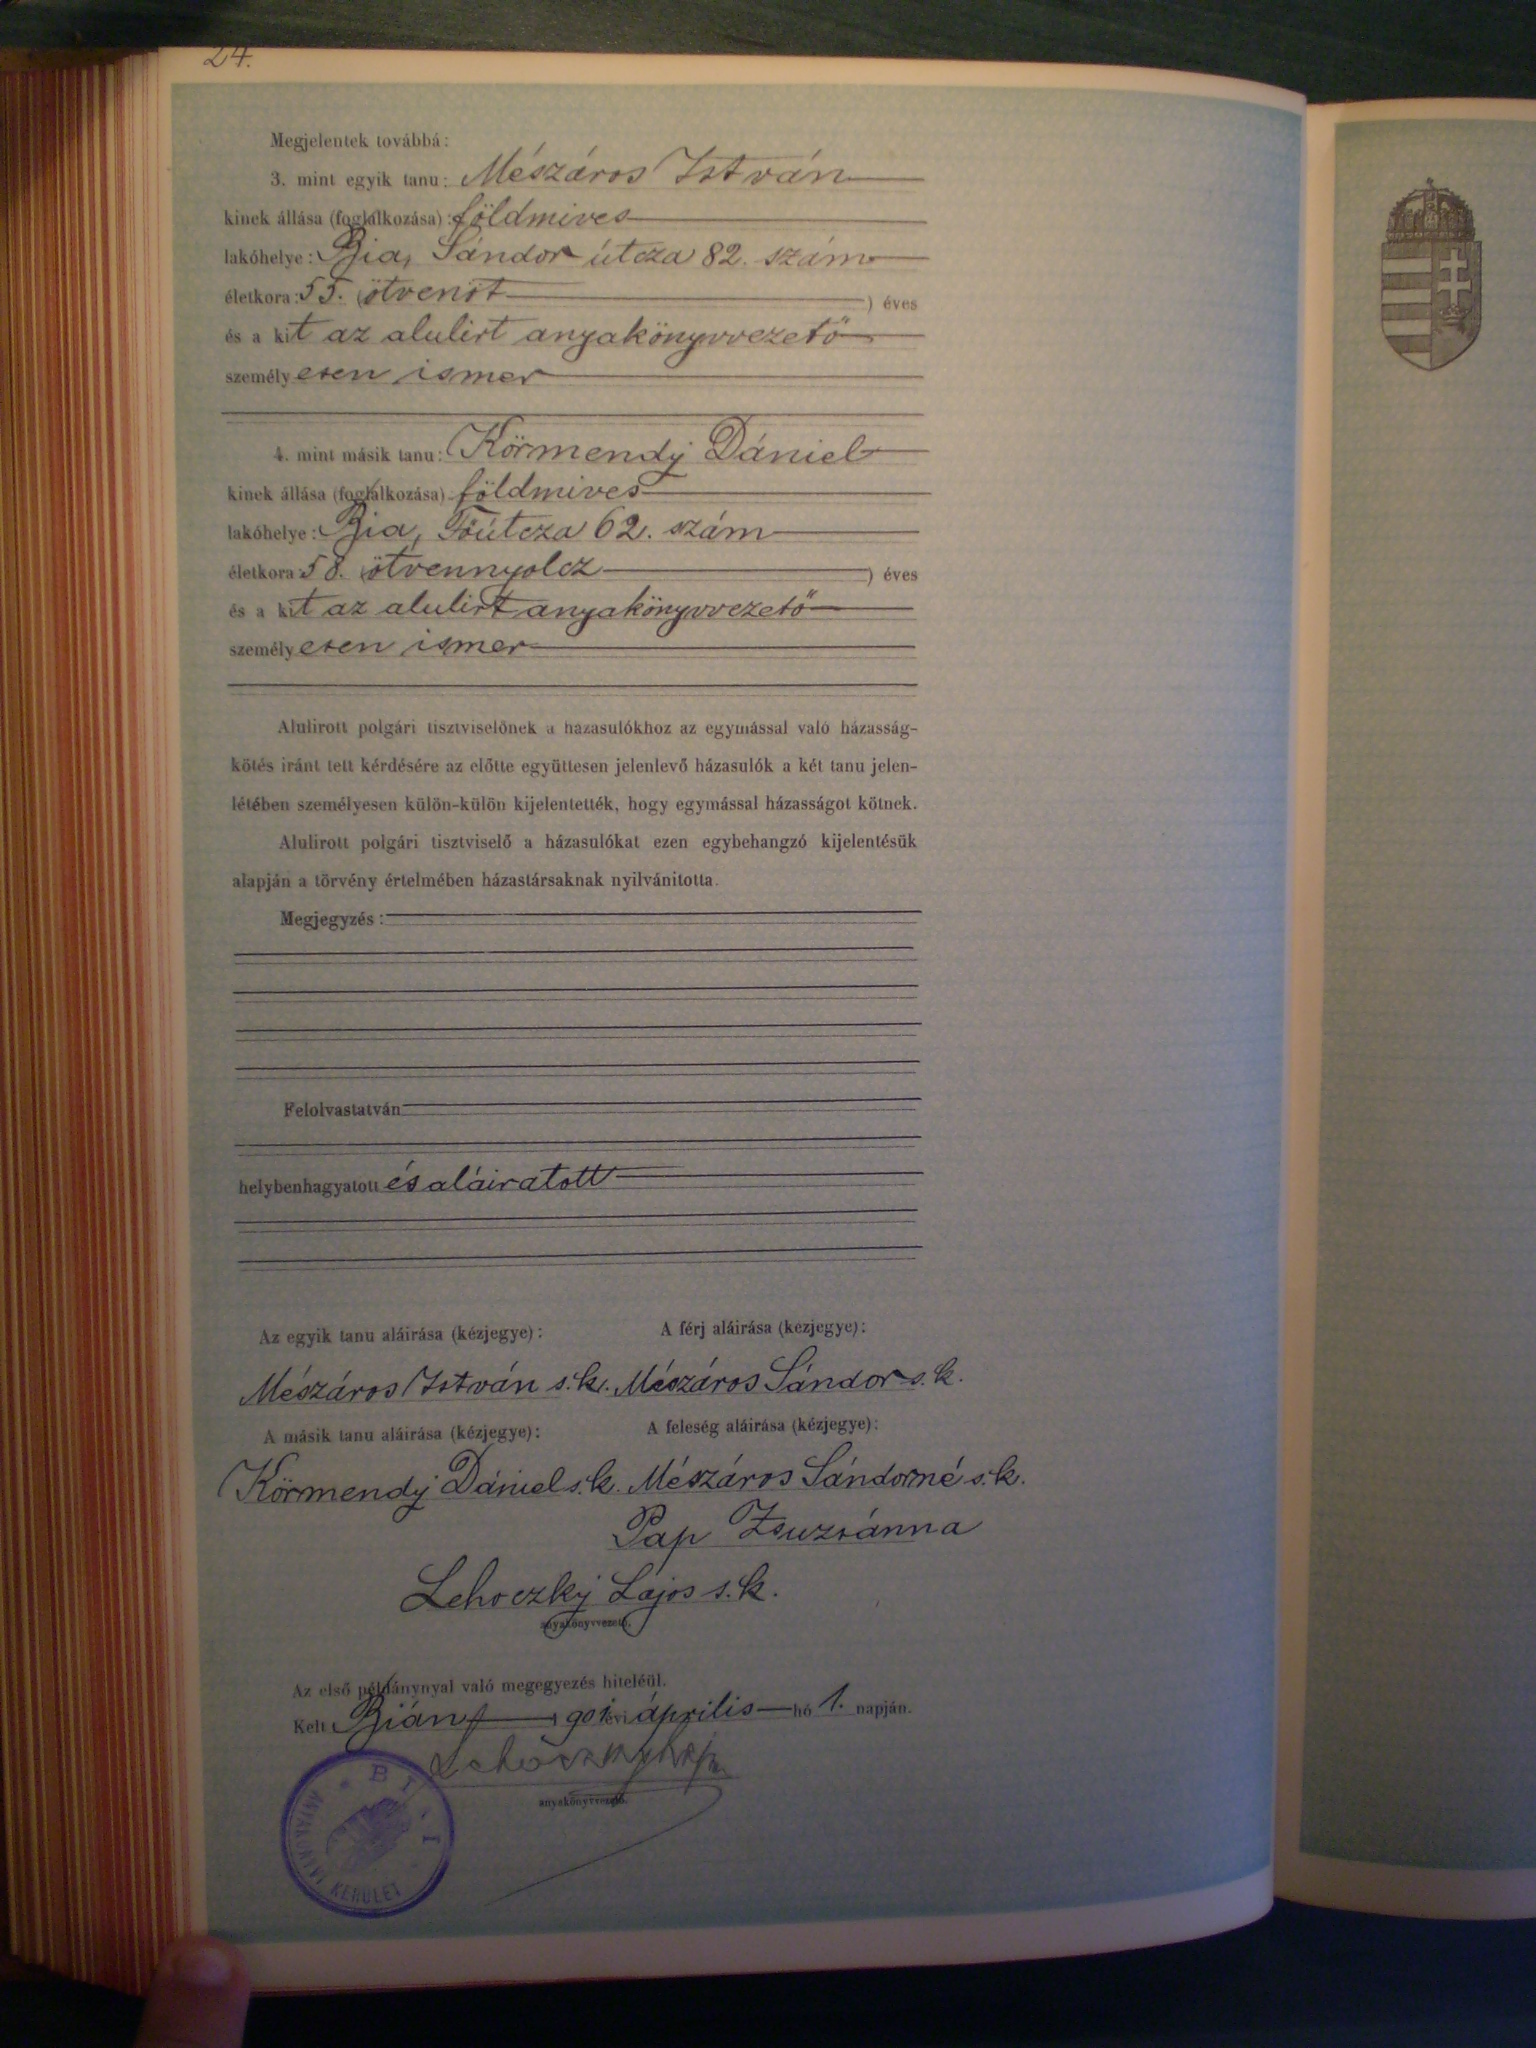 24.
Megjelentek továbbá:
3. mint egyik tanu: Mészáros István
kinek állása (foglalkozása): földmives
lakóhelye: Bia, Sándor útcza 82. szám
életkora: 55. (ötvenöt) éves
és a kit az alulirt anyakönyvvezető
személyesen ismer
4. mint másik tanu: Körmendy Dániel
kinek állása (foglalkozása) földmives
lakóhelye: Bia, Főútcza 62. szám
életkora 58. (ötvennyolcz) éves
és a kit az alulirt anyakönyvvezető
személyesen ismer
Alulirott polgári tisztviselőnek a házasulókhoz az egymással való házasság-
kötés iránt tett kérdésére az előtte együttesen jelenlevő házasulók a két tanu jelen-
létében személyesen külön-külön kijelentették, hogy egymással házasságot kötnek.
Alulirott polgári tisztviselő a házasulókat ezen egybehangzó kijelentésük
alapján a törvény értelmében házastársaknak nyilvánitotta.
Megjegyzés:
Felolvastatván
helybenhagyatott és aláiratott
Az egyik tanu aláirása (kézjegye): A férj aláirása (kézjegye):
Mészáros István s.k. Mészáros Sándor s.k.
A másik tanu aláirása (kézjegye): A feleség aláirása (kézjegye):
Körmendy Dániel s.k. Mészáros Sándorné s.k.
Pap Zsuzsánna
Lehoczky Lajos s.k.
anyakönyvvezető.
Az első példánynyal való megegyezés hiteléül.
Kelt Bián, 1901 évi április hó 1. napján.
anyakönyvvezető.
BIAI
ANYAKÖNYVI KERÜLET